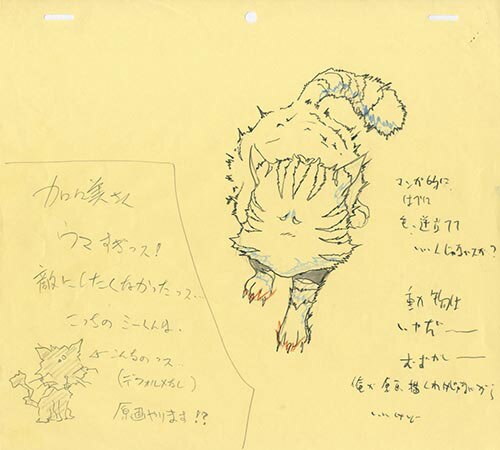 加々美さん
ウマすぎっス!
敵にしたくなかったっス…
こっちのミーくんは、
こんなのっス…
(デフォルメなし)
原画やります!?
マンガ的に
はでに
毛、逆立てて
いいんじゃないスか?
動物は
いやだ――
むずかしー
俺が原画描くわけじゃないから
いいけど